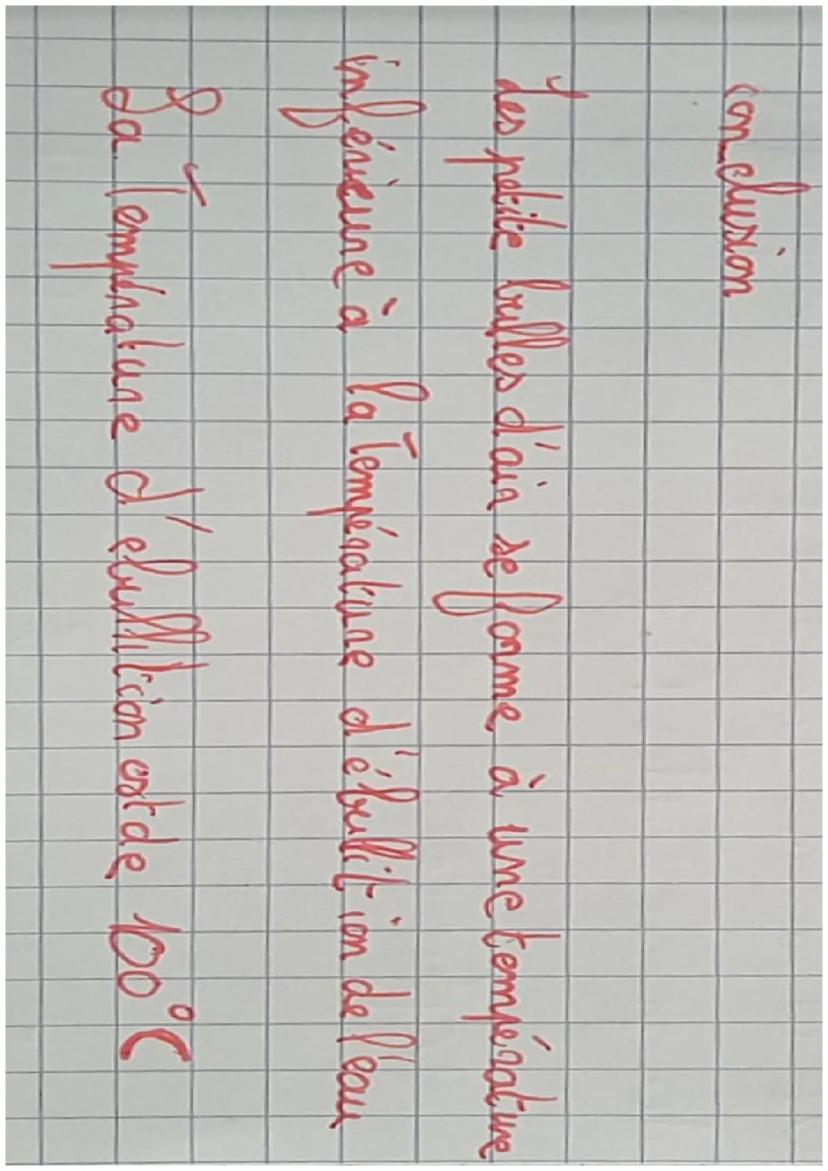 conclusion
Les petite bulles d'air se forme à une température
inférieure à la température d'ébullition de l'eau
La température d'ébullition est de 100°C